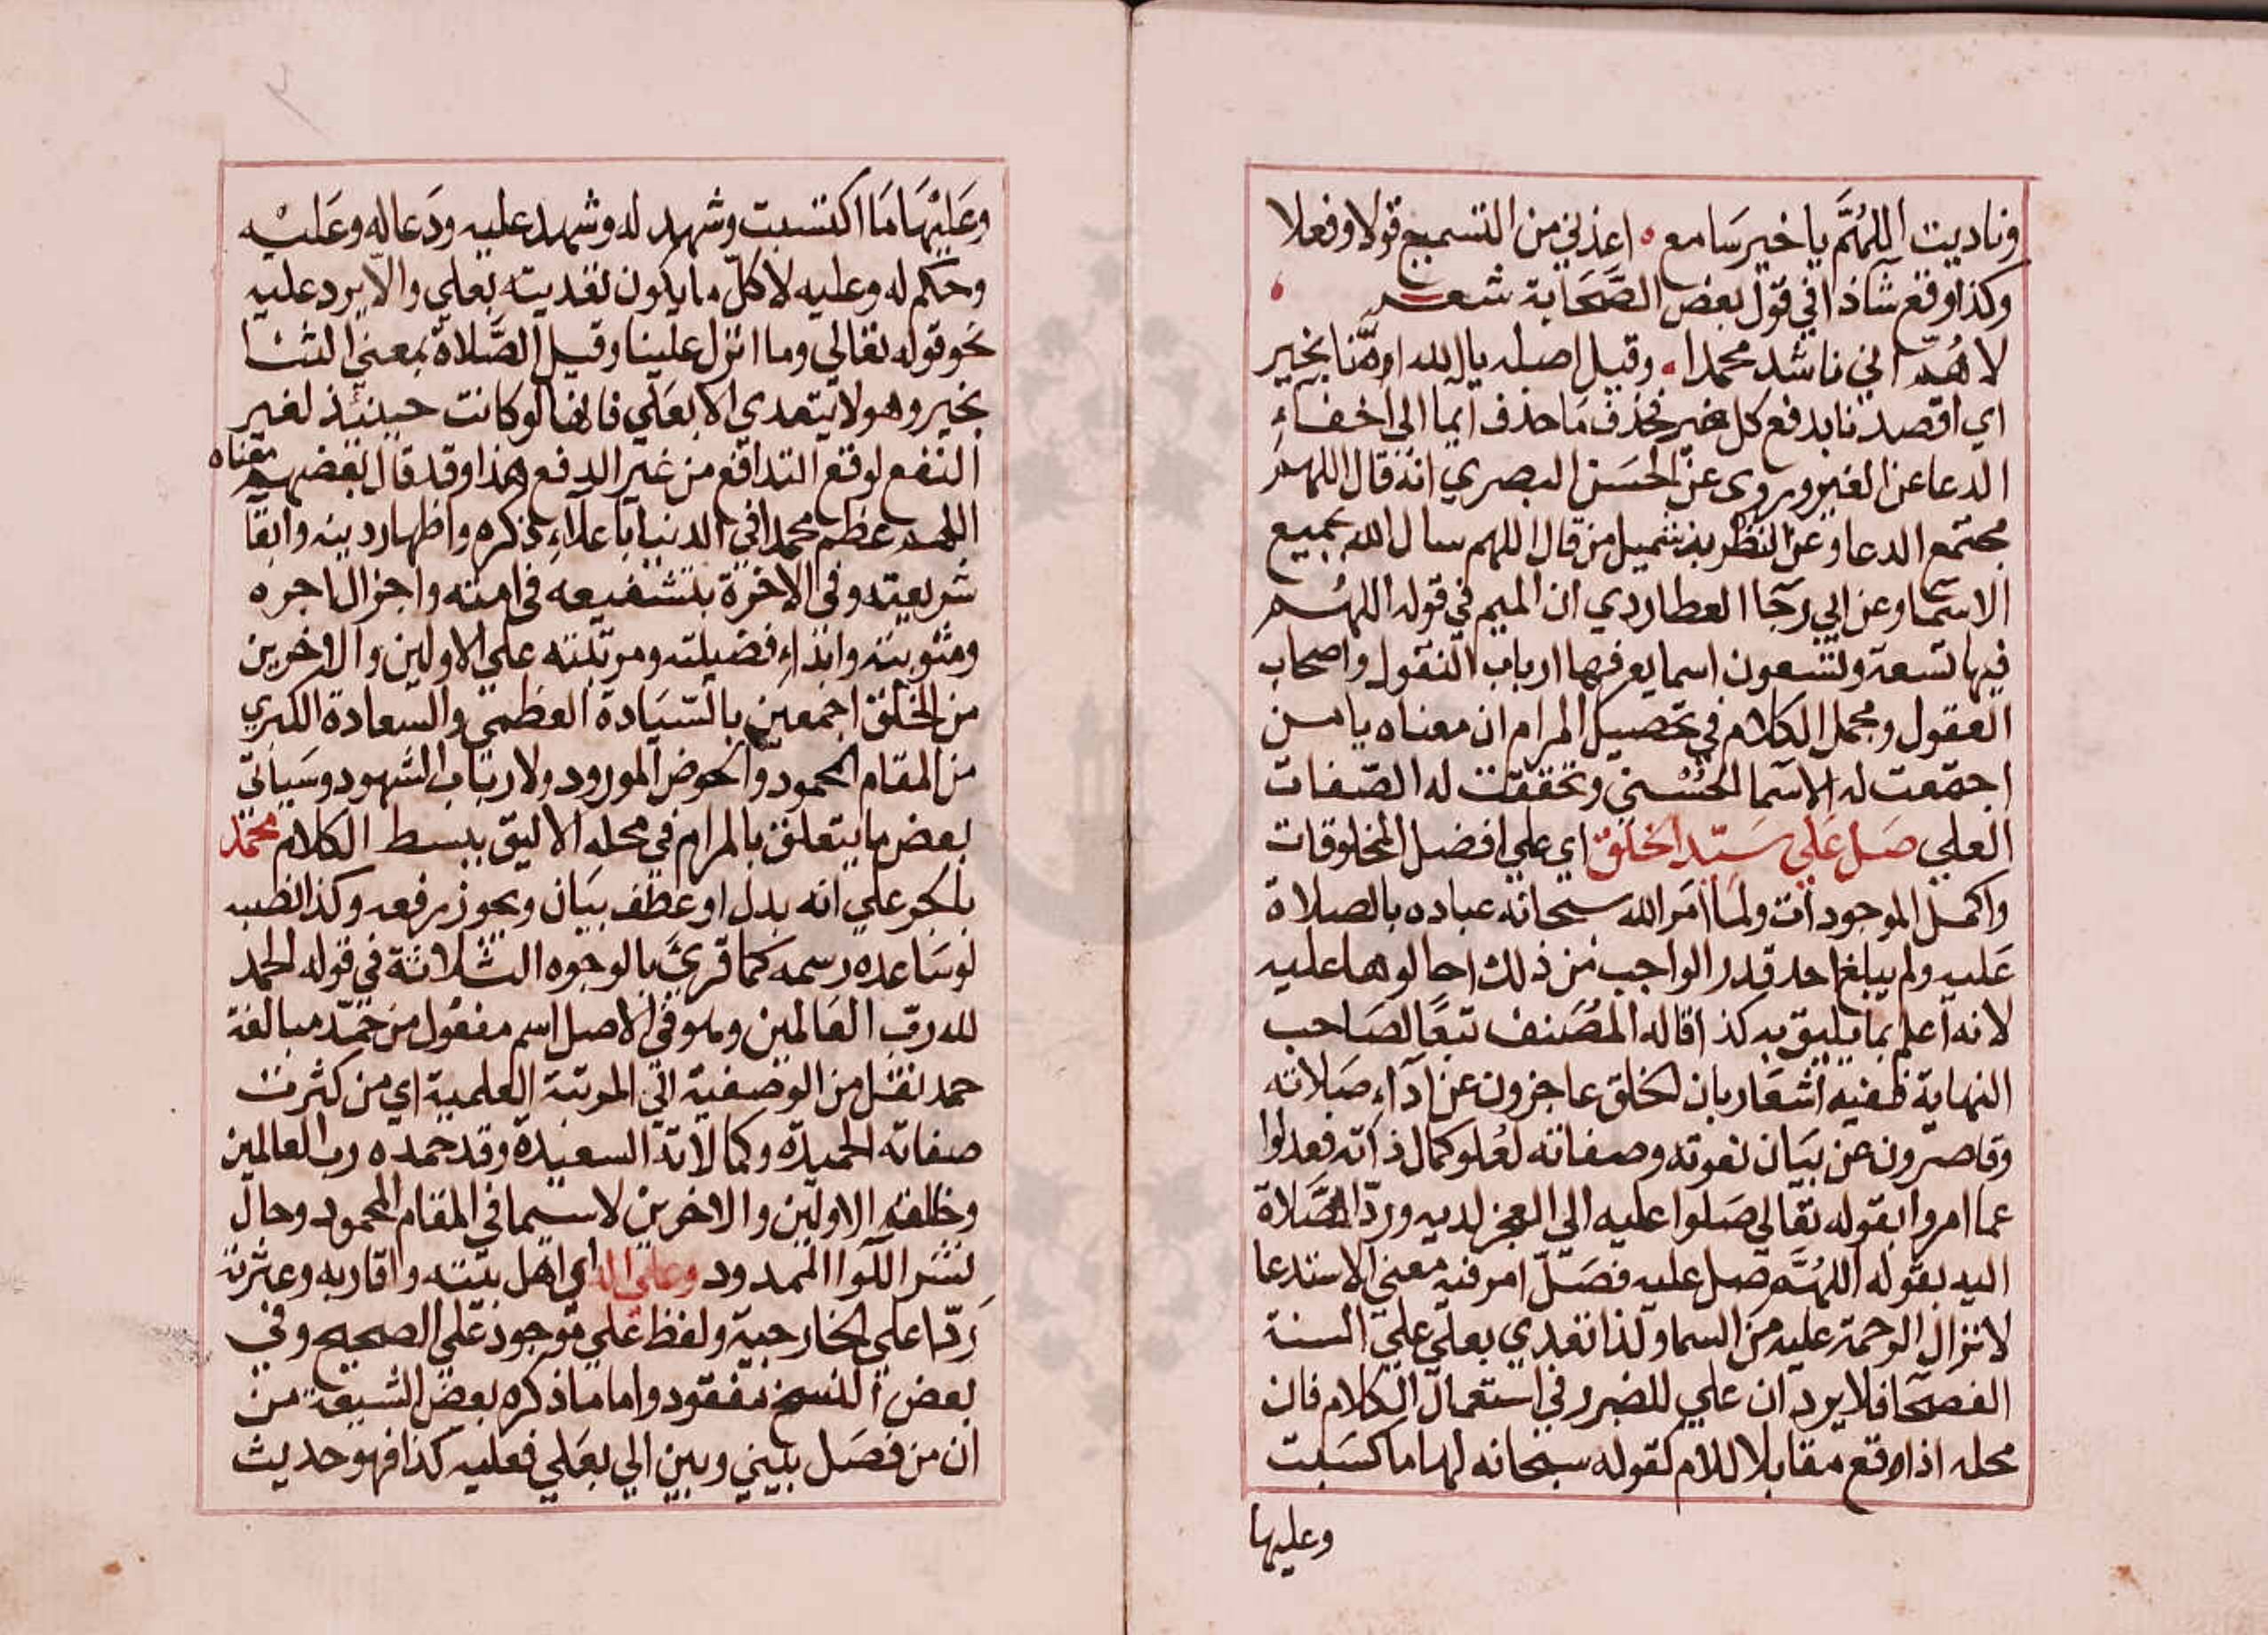 وناديت اللهُمَّ يا خير سَامع ه اعذني من التسميع قولا وفعلا
وكذا وقع شاذا في قول بعض الصَّحَابة شعر
لا هُمّ اني ناشد محمدا ه وقيل اصله يا الله اومّنا بخير
اي اقصدنا بدفع كل ضير فحذف مَا حذف ايما الى اخفاءِ
الدعا عن الغير وروى عن الحسَن البصري انه قال اللهم
مجتمع الدعا وعن النظر بن شميل من قال اللهم سال الله بجميع
الاسما وعن ابي رجَا العطاردي ان الميم في قوله اللهُم
فيها تسعة وتسعون اسما يعرفها ارباب النقول واصحاب
العقول ومجمل الكلام في تحصيل المرام ان معناه يا من
اجتمعت له الاسما الحُسْني وتحققت له الصّفات
العلي صَل عَلي سَيّد الخلق اي علي افضل المخلوقات
واكمل الموجودات ولما امَر الله سبحانه عباده بالصلاة
عَليه ولم يبلغ احد قدر الواجب من ذلك احالوها عليه
لانه اعلم بما يليق به كذا قاله المُصَنف تبعًا لصَاحب
النهاية ففيه اشعَار بان الخلق عاجزون عن اداءِ صَلاته
وقاصرون عن بيَان نعوته وصفاته لعُلو كمال ذاته فعدلوا
عما امروا بقوله تعَالي صَلوا عليه الي العجز لديه وردّ الصَّلاة
اليه بقوله اللهُمَّ صل عليه فصَلّ امر فيه معني الاستدعا
لانزال الرحمة عليه من السما ولذا تعدي بعلي علي السنة
الفصحَا فلا يرد ان علي للضرر في استعمال الكلام فان
محله اذا وقع مقابلا للام كقوله سبحانه لها ما كسَبت
وعليها
وعَليْهَا مَا اكتسبت وشهد له وشهد عليه ودَعا له وعَليْه
وحكم له وعليه لا كلّ ما يكون تعديته بعلي والّا يرد عليه
نحو قوله تعَالي وما انزل علينا وقيل الصَّلاة بمعني الثنا
بخير وهو لا يتعدي الا بعَلي فانها لو كانت حينئذ لغير
النفع لوقع التدافع من غير الدفع هذا وقد قال بعضهم معناه
اللهم عظم محمدا في الدنيا باعلاءِ ذكره واظهار دينه وابقا
شريعته وفي الاخرة بتشفيعه في امته واجزال اجره
ومثوبته وابداءِ فضيلته ومرتبته علي الاولين والاخرين
من الخلق اجمعين بالسّيَادة العظمي والسعادة الكبري
من المقام المحمود والحوض المورود ولارباب الشهود وسَياتي
بعض ما يتعلق بالمرام في محله الاليق ببسط الكلام محمّد
بالجر علي انه بدل او عطف بيَان ويجوز رفعه وكذا نصبه
لو سَاعده رسمه كما قرئَ بالوجوه الثلاثة في قوله الحمد
لله ربّ العَالمين وهو في الاصل اسم مفعُول من حَمّد مبالغة
حمد نقل من الوصفية الي المرتبة العلمية اي من كثرت
صفاته الحميدة وكمالاته السعيدة وقد حمده رب العالمين
وخلقه الاولين والاخرين لا سيما في المقام المحمود وحال
نشر اللّوا الممدود وعلي اله اي اهل بيته واقاربه وعترته
رَدّا علي الخارجية ولفظ علي موجود علي الصحيح وفي
بعض النسخ مفقود واما ما ذكره بعض الشيعة من
ان من فصَل بيني وبين الي بعَلي فعليه كذا فهو حديث